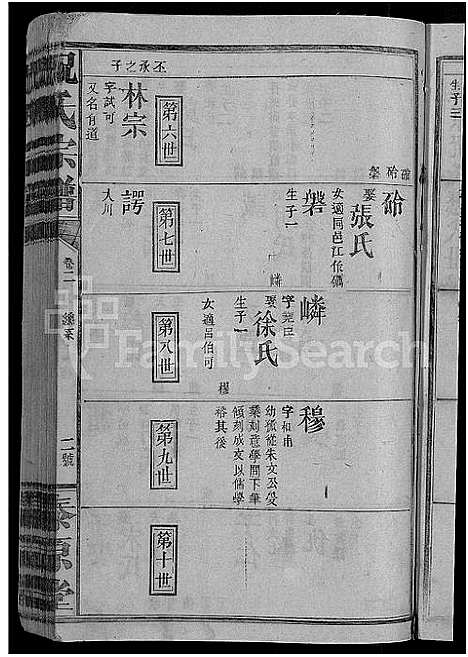 祝氏宗譜
卷二
二號
泰原堂
生子三
丕承之子
第六世
林宗
字試可
又名有道
第七世
硁
娶張氏
女適同邑江作礪
磐
生子一
嶙
諤
大川
第八世
嶙
字堯臣
娶徐氏
生子一
穆
女適呂伯可
第九世
穆
字和甫
幼孤從朱文公受
業刻意學問下筆
頃刻成文以儒學
裕其後
第十世
FamilySearch